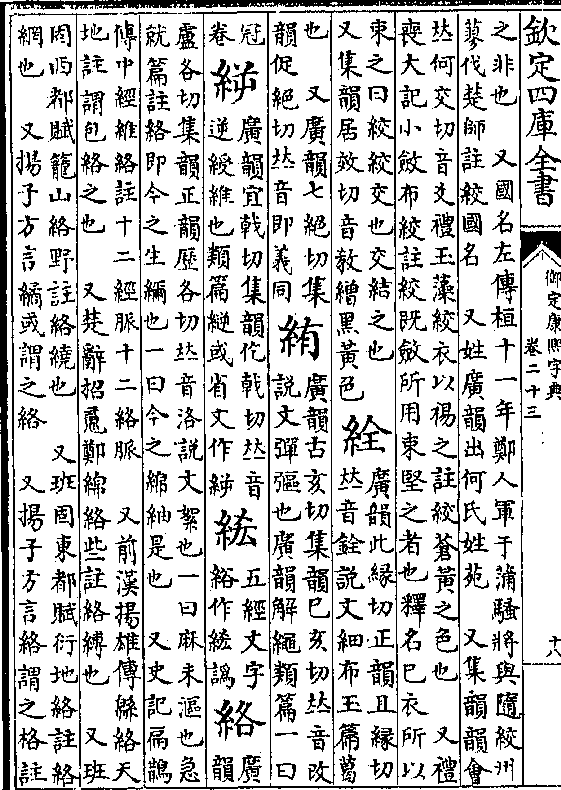 欽定四庫全書
御定康熙字典
卷二十三
十八
之非也　又國名左傳桓十一年鄭人軍于蒲騷將與隨絞州
蓼伐楚師註絞國名　又姓廣韻出何氏姓苑　又集韻韻會
𠀤何交切音爻禮玉藻絞衣以裼之註絞蒼黃之色也　又禮
喪大記小斂布絞註絞旣斂所用束堅之者也釋名已衣所以
束之曰絞絞交也交結之也
又集韻居效切音敎繒黑黃色
絟
廣韻此緣切正韻且緣切
𠀤音銓說文細布玉篇葛
也　又廣韻七絕切集
韻促絕切𠀤音𦕈義同
絠
廣韻古亥切集韻巳亥切𠀤音改
說文彈彄也廣韻解繩類篇一曰
冠
卷
縌
廣韻宜戟切集韻仡戟切𠀤音
逆綬維也類篇縌或省文作䋠
綋
五經文字
綌作綋譌
絡
廣
韻
盧各切集韻正韻歷各切𠀤音洛說文絮也一曰麻未漚也急
就篇註絡卽今之生𦃇也一曰今之綿紬是也　又史記扁鵲
傳中經維絡註十二經脈十二絡脈　又前漢揚雄傳緜絡天
地註謂包絡之也　又楚辭招䰟鄭綿絡些註絡縛也　又班
固西都賦籠山絡野註絡繞也　又班固東都賦衍地絡註絡
網也　又揚子方言繘或謂之絡　又揚子方言絡謂之格註